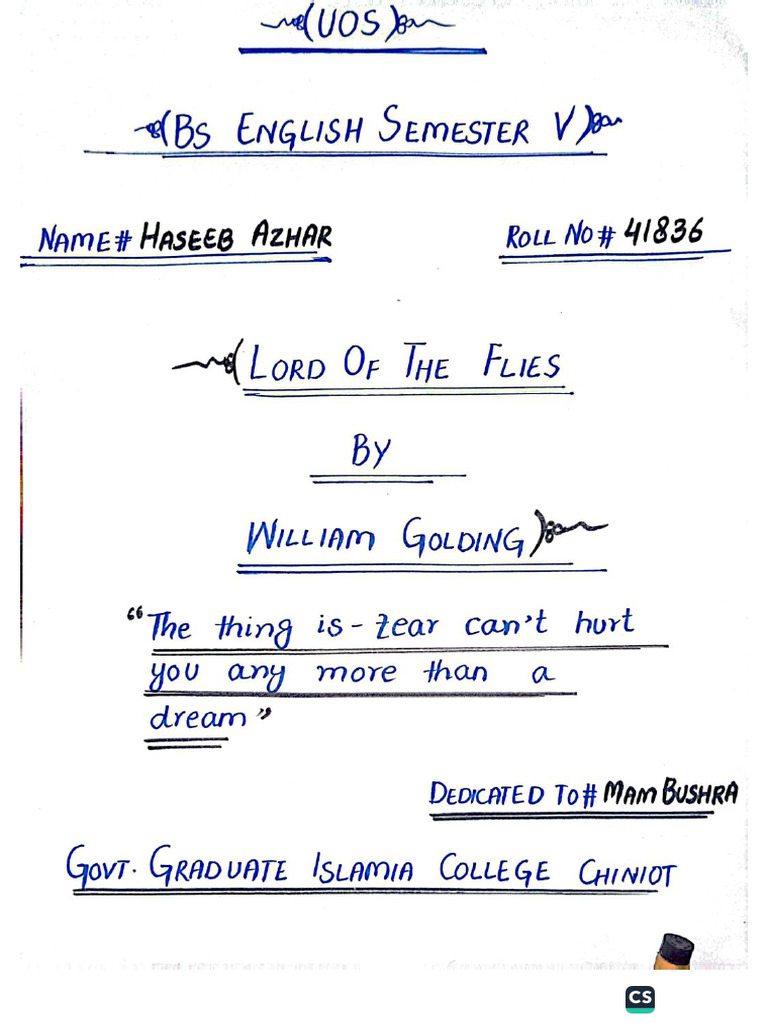 (UOS)
(BS ENGLISH SEMESTER V)
NAME# HASEEB AZHAR
ROLL NO# 41836
(LORD OF THE FLIES
BY
WILLIAM GOLDING)
“The thing is - fear can't hurt
you any more than a
dream”
DEDICATED TO# MAM BUSHRA
GOVT. GRADUATE ISLAMIA COLLEGE CHINIOT
CS